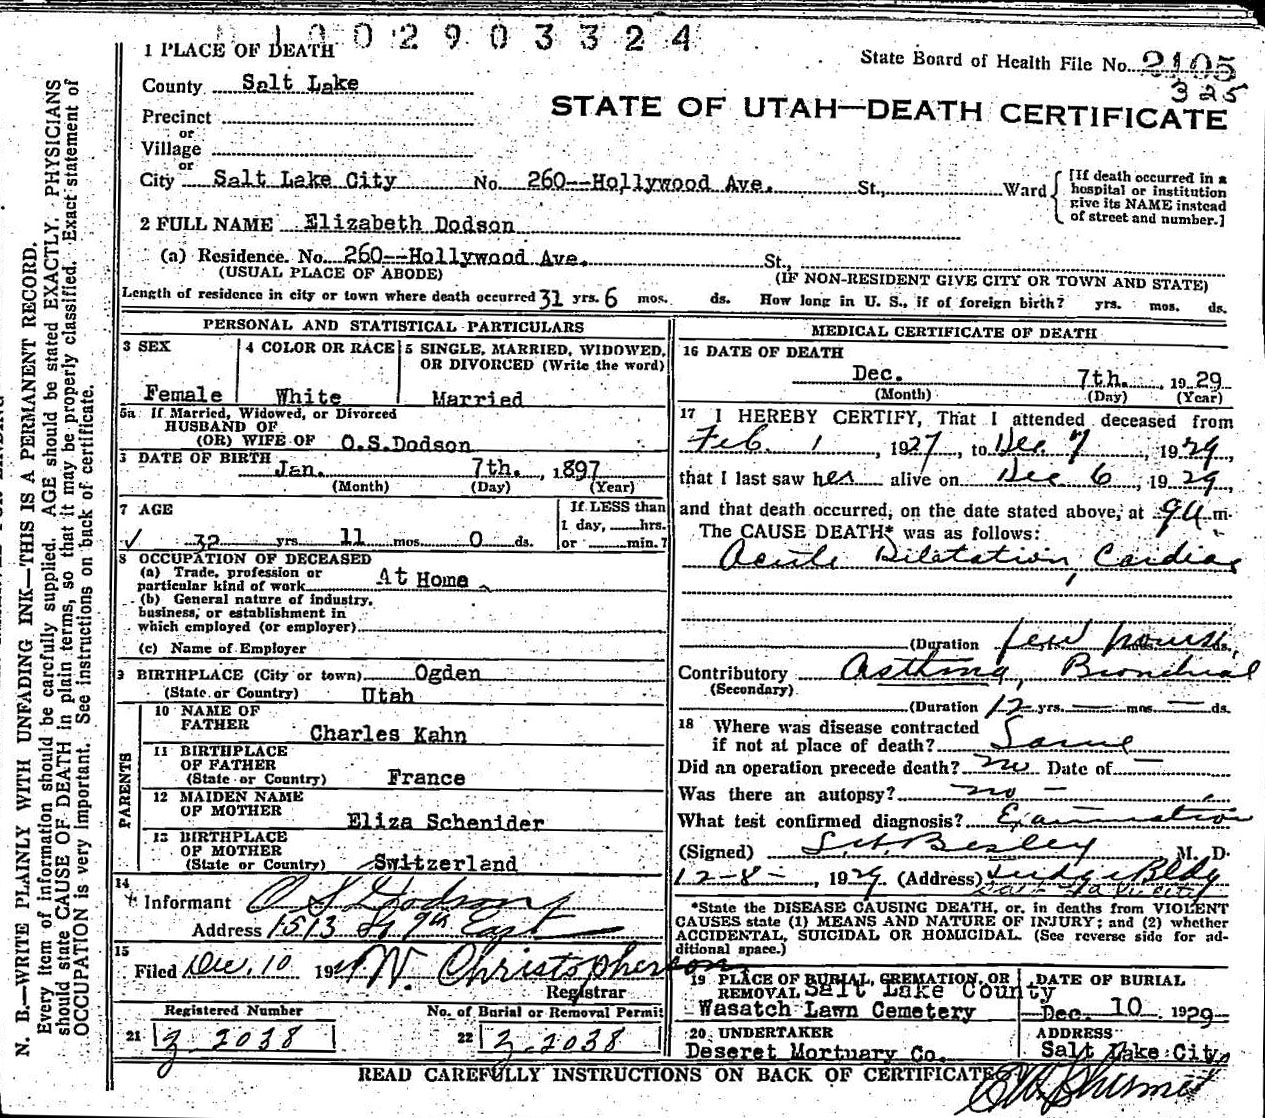 1002903324
1 PLACE OF DEATH
State Board of Health File No. 2105
325
County Salt Lake
STATE OF UTAH—DEATH CERTIFICATE
Precinct
or
Village
or
City Salt Lake City No. 260--Hollywood Ave. St., Ward
[If death occurred in a
hospital or institution
give its NAME instead
of street and number.]
2 FULL NAME Elizabeth Dodson
(a) Residence. No. 260--Hollywood Ave. St.,
(USUAL PLACE OF ABODE) (IF NON-RESIDENT GIVE CITY OR TOWN AND STATE)
Length of residence in city or town where death occurred 31 yrs. 6 mos. ds. How long in U. S., if of foreign birth? yrs. mos. ds.
PERSONAL AND STATISTICAL PARTICULARS
3 SEX
Female
4 COLOR OR RACE
White
5 SINGLE, MARRIED, WIDOWED,
OR DIVORCED (Write the word)
Married
5a If Married, Widowed, or Divorced
HUSBAND OF
(OR) WIFE OF O.S.Dodson
DATE OF BIRTH
Jan. 7th. , 1897
(Month) (Day) (Year)
7 AGE
32 yrs 11 mos 0 ds.
If LESS than
1 day, hrs.
or min.?
8 OCCUPATION OF DECEASED
(a) Trade, profession or
particular kind of work At Home
(b) General nature of industry,
business, or establishment in
which employed (or employer)
(c) Name of Employer
9 BIRTHPLACE (City or town) Ogden
(State or Country) Utah
PARENTS
10 NAME OF
FATHER
Charles Kahn
11 BIRTHPLACE
OF FATHER
(State or Country) France
12 MAIDEN NAME
OF MOTHER
Eliza Schenider
13 BIRTHPLACE
OF MOTHER
(State or Country) Switzerland
14
Informant O S Dodson
Address 1513 So 9th East
15
Filed Dec. 10 1929 W. Christopherson
Registrar
Registered Number
21 2038
No. of Burial or Removal Permit
22 2038
MEDICAL CERTIFICATE OF DEATH
16 DATE OF DEATH
Dec. 7th. , 1929
(Month) (Day) (Year)
17 I HEREBY CERTIFY, That I attended deceased from
Feb. 1 , 1927, to Dec 7 , 1929,
that I last saw her alive on Dec 6, 1929,
and that death occurred, on the date stated above, at 9 a m.
The CAUSE DEATH* was as follows:
Acute Dilatation, Cardiac
(Duration few hours ds.
Contributory Asthma, Bronchial
(Secondary)
(Duration 12 yrs. — mos — ds.
18 Where was disease contracted
if not at place of death? Same
Did an operation precede death? no Date of —
Was there an autopsy? no —
What test confirmed diagnosis? Examination
(Signed) Besley M. D.
12-8- , 1929 (Address) Judge Bldg
Salt Lake City
*State the DISEASE CAUSING DEATH, or, in deaths from VIOLENT
CAUSES state (1) MEANS AND NATURE OF INJURY; and (2) whether
ACCIDENTAL, SUICIDAL OR HOMICIDAL. (See reverse side for ad-
ditional space.)
19 PLACE OF BURIAL, CREMATION, OR
REMOVAL Salt Lake County
Wasatch Lawn Cemetery
DATE OF BURIAL
Dec. 10 1929
20 UNDERTAKER
Deseret Mortuary Co.
ADDRESS
Salt Lake City
READ CAREFULLY INSTRUCTIONS ON BACK OF CERTIFICATE
N. B.—WRITE PLAINLY WITH UNFADING INK—THIS IS A PERMANENT RECORD.
Every item of information should be carefully supplied. AGE should be stated EXACTLY. PHYSICIANS
should state CAUSE OF DEATH in plain terms, so that it may be properly classified. Exact statement of
OCCUPATION is very important. See instructions on back of certificate.